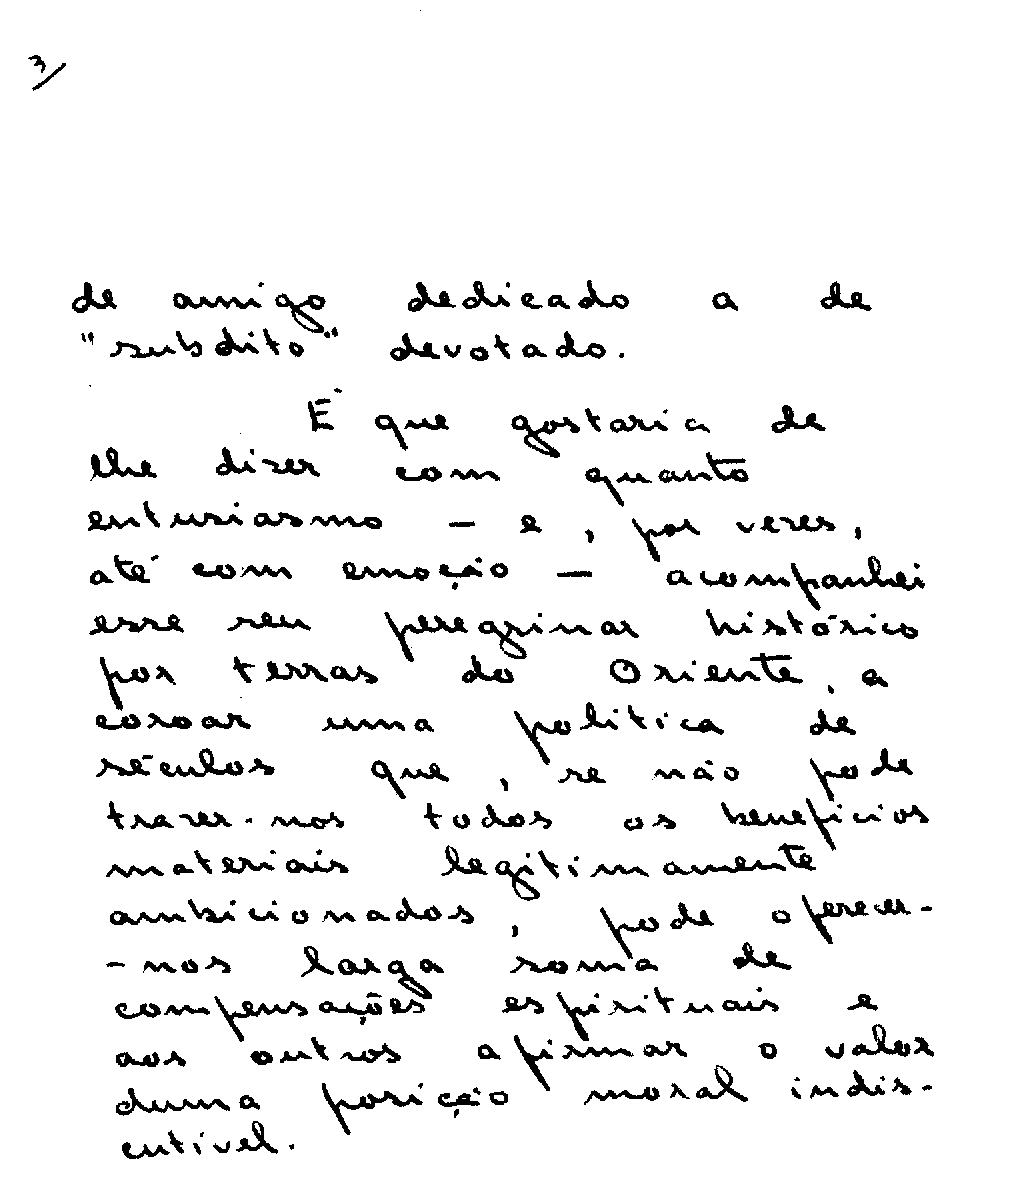 3/
de amigo dedicado a de
"subdito" devotado.
É que gostaria de
lhe dizer com quanto
entusiasmo – e, por vezes,
até com emoção – acompanhei
esse seu peregrinar histórico
por terras do Oriente, a
coroar uma politica de
séculos que, se não pode
trazer-nos todos os beneficios
materiais legitimamente
ambicionados, pode oferecer-
-nos larga soma de
compensações espirituais e
aos outros afirmar o valor
duma posição moral indis-
cutível.